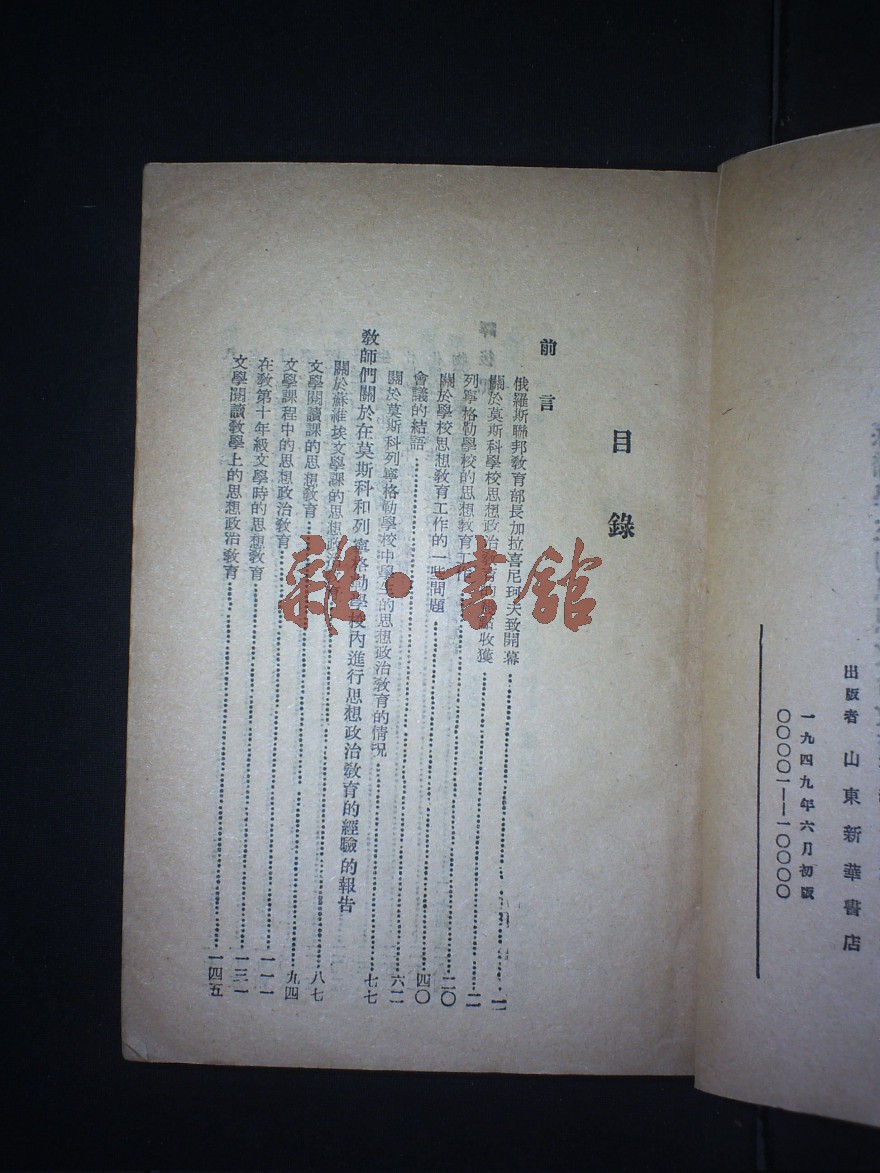 出版者 山東新華書店
一九四九年六月初版
〇〇〇〇一—一〇〇〇〇
目錄
前言
俄羅斯聯邦教育部長加拉喜尼珂夫致開幕
關於莫斯科學校思想政治 收獲
列寧格勒學校的思想教育工作 二〇
關於學校思想教育工作的一些問題 四〇
會議的結語 六二
關於莫斯科列寧格勒學校中學生的思想政治教育的情况 七七
教師們關於在莫斯科和列寧格勒學校內進行思想政治教育的經驗的報告
關於蘇維埃文學課的思想政治 八七
文學閱讀課的思想教育 九四
文學課程中的思想政治教育 一一一
在教第十年級文學時的思想教育 一三一
文學閱讀教學上的思想政治教育 一四五
雜·書館